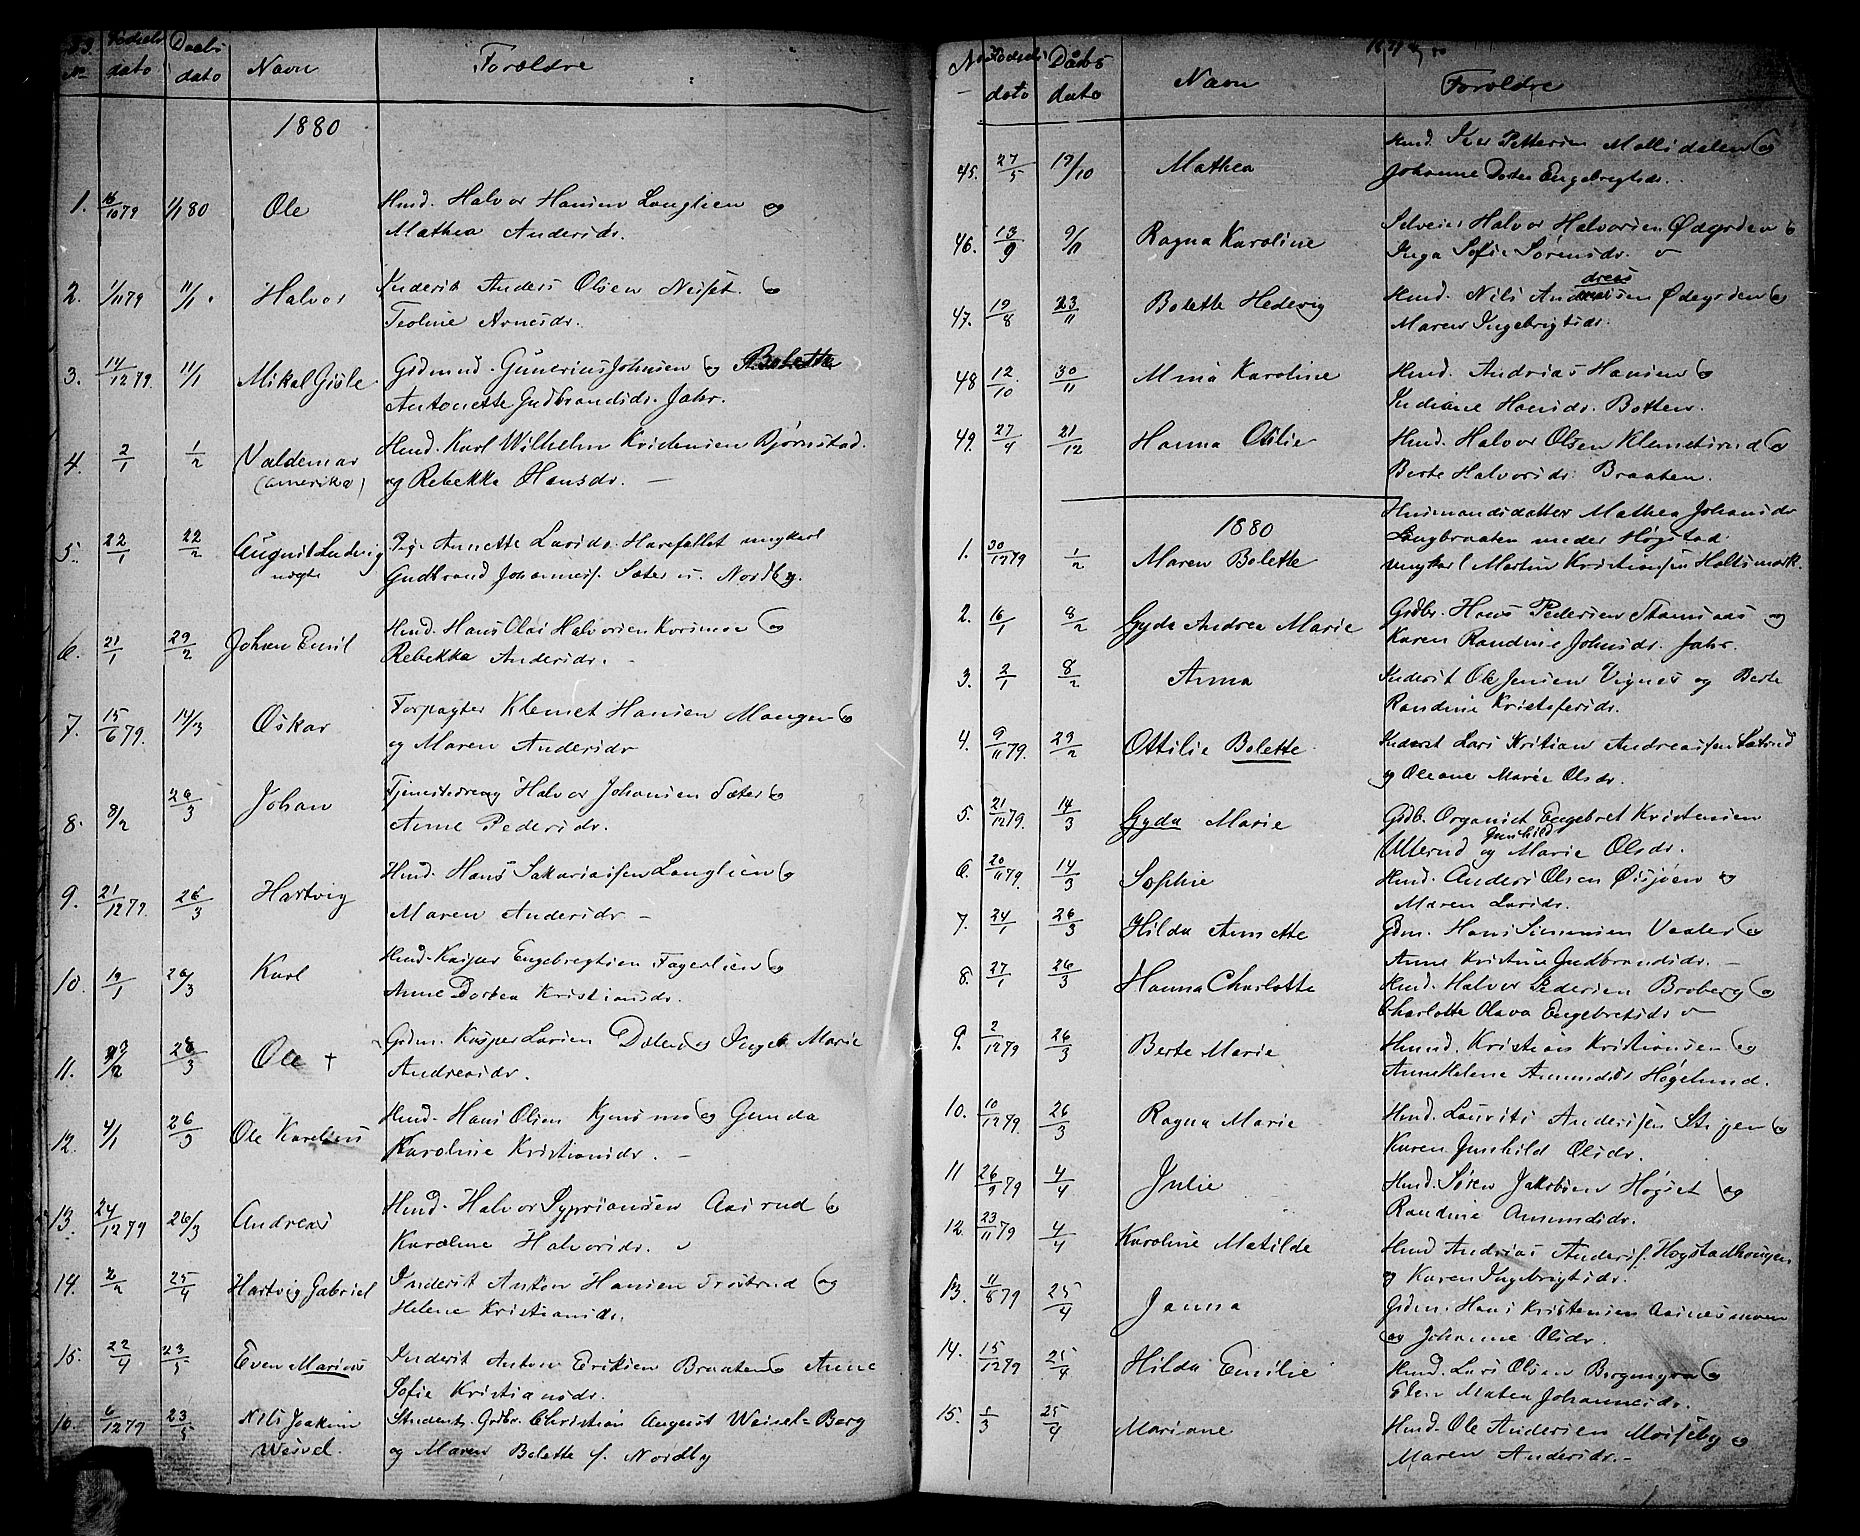 Fødsels Daabs
No dato dato Navn Forældre
1880
1. 16/10 79 1/1 80 Ole Husmd. Halvor Hansen Langlien og
Mathea Andersdr.
2. 1/11 79 11/1 Halvor Inderst Anders Olsen Neset og
Teoline Arnesdr.
3. 14/12 79. 11/1 Mikal Gisle Gdmnd. Gunerius Johnsen og
Antonette Gudbrandsdr. Jahr.
4. 2/1 1/2 Valdemar Hmd. Karl Wilhelm Kristensen Bjørnstad
(amerika) og Rebekka Hansdr. —
5. 22/1 22/2 August Ludvig Pig. Annette Larsdr. Harefallet ungkarl
uægte Gudbrand Johannesf. Sæter u. Nordby.
6. 21/1 29/2 Johan Emil Hmd. Hans Olai Halvorsen Korsmoe og
Rebekka Andersdr. -
7. 15/6 79. 14/3 Oskar Forpagter Klemet Hansen Mangen
og Maren Andersdr
8. 8/2 26/3 Johan Tjenestedreng Halvor Johansen Sæter og
Anne Pedersdr.
9. 21/12 79. 26/3 Hartvig Hmd. Hans Sakariasen Langlien og
Maren Andersdr —
10. 19/1 26/3 Karl Hmd. Kasper Engebregtsen Fagerlien og
Anne Dortea Kristiansdr.
11. /2 28/3 Ole + Gdm. Kasper Larsen Dalen og Ingeb. Marie
Andreasdr.
12. 4/1 26/3 Ole Karelius Hmd. Hans Olsen Kjensmo og Gunda
Karoline Kristiansdr. —
13. 24/12 79 26/3 Andreas Hmd. Halvor Sypriansen Aasrud og
Karoline Halvorsdr.
14. 2/2 25/4 Hartvig Gabriel Inderst Anton Hansen Trøstrud og
Helene Kristiansdr.
15. 22/4 23/5 Even Marius Inderst Anton Eriksen Braaten og Anne
Sofie Kristiansdr.
16. 6/12 79 23/5 Nils Joakim Student, Grdbr. Christian August Weisel-Berg
Weisel. og Maren Bolette f. Nordby
No Fødsels Dåbs
dato dato Navn Forældre
45. 27/5 19/10 Mathea Hmd. Iver Pettersen Mollsdalen og
Johanne Dortea Engebregtsdr.
46. 13/9 9/11 Ragna Karoline Selveier Halvor Halvorsen Ødegrden og
Inga Sofie Sørensdr.
47. 19/8 23/11 Bolette Hedevig Hmd. Nils Andreassen Ødegrden og
Maren Ingebrigtsdr.
48 12/10 30/11 Mina Karoline Hmd. Andrias Hansen og
Indiane Hansdr. Botten.
49. 27/4 21/12 Hanna Otilie Hmd. Halvor Olsen Klemetsrud og
Berte Halvorsdr. Braaten.
1880
Husmandsdatter Mathea Johansdr
1. 30/12 79 1/2 Maren Bolette Langbraaten under Høgstad.
ungkarl Martin Kristiansen Haltsmark.
2. 16/1 8/2 Gyda Andrea Marie Grdbr. Hans Pedersen Stamsaas og
Karen Randine Johnsdr. Jahr.
3. 2/1 8/2 Anna Inderst Ole Jensen Vignes og Berte
Randine Kristofersdr.
4. 9/11 79. 29/2 Ottilie Bolette Inderst Lars Kristian Andreassen Sætrud
og Oleane Marie Olsdr.
5. 21/12 79. 14/3 Gyda Marie Grdb. Organist Engebret Kristensen
Gunhild
Ullerud og Marie Olsdr.
6. 20/11 79. 14/3 Sophie Hmd. Anders Olsen Øisjøen og
Maren Larsdr.
7. 24/1 26/3 Hilda Annette Gdm. Hans Simensen Vaaler og
Anne Kristine Gudbrandsdr. —
8. 27/1 26/3 Hanna Charlotte Hmd. Halvor Pedersen Broberg og
Charlotte Olava Engebretsdr
9. 2/12 79 26/3 Berte Marie Hmnd. Kristian Kristiansen og
Anne Helene Amundsdr Høgelund.
10. 10/12 79. 26/3 Ragna Marie Hmd. Laurits Andersen Stigen og
Karen Gunhild Olsdr.
11 26/9 79 4/4 Julie Hmd. Søren Jakobsen Høgset og
Randine Amundsdr.
12. 23/11 79 4/4 Karoline Matilde Hmd Andrias Andersf. Høgstadhougen
og Karen Ingebrigtsdr.
13. 11/8 79 25/4 Janna Gdm. Hans Kristensen Aarnesmoen
og Johanne Olsdr.
14. 15/12 79 25/4 Hilda Emilie Hmd. Lars Olsen Bergmyra og
Elen Matea Johannesdr.
15. 1/3 25/4 Mariane Hmd. Ole Andersen Moseby og
Maren Andersdr. -